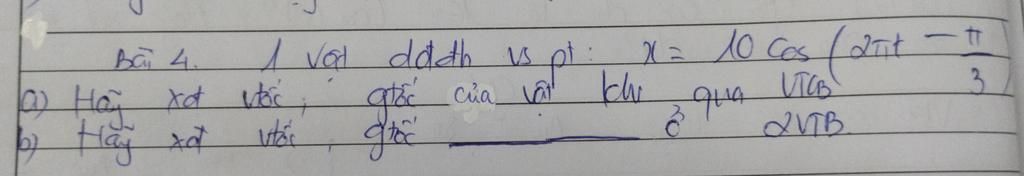 Bài 4. 1 vật dđđh vs pt: x = 10 cos (2πt - π/3)
a) Hãy xđ vtốc, gtốc của vật khi qua VTCB
b) Hãy xđ vtốc, gtốc ______ ở 2VTB